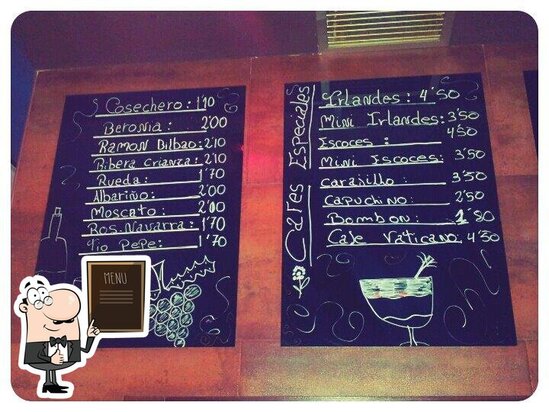 Cosechero: 1'10
Beronia: 2'00
Ramon Bilbao: 2'10
Ribera Crianza: 2'10
Rueda: 1'70
Albariño: 2'00
Moscato: 2'00
Ros. Navarra: 1'70
Tio Pepe: 1'70
Cafes Especiales
Irlandes: 4'50
Mini Irlandes: 3'50
Escoces: 4'50
Mini Escoces: 3'50
Carajillo: 3'50
Capuchino: 2'50
Bombon: 1'80
Cafe Vaticano: 4'50
MENU